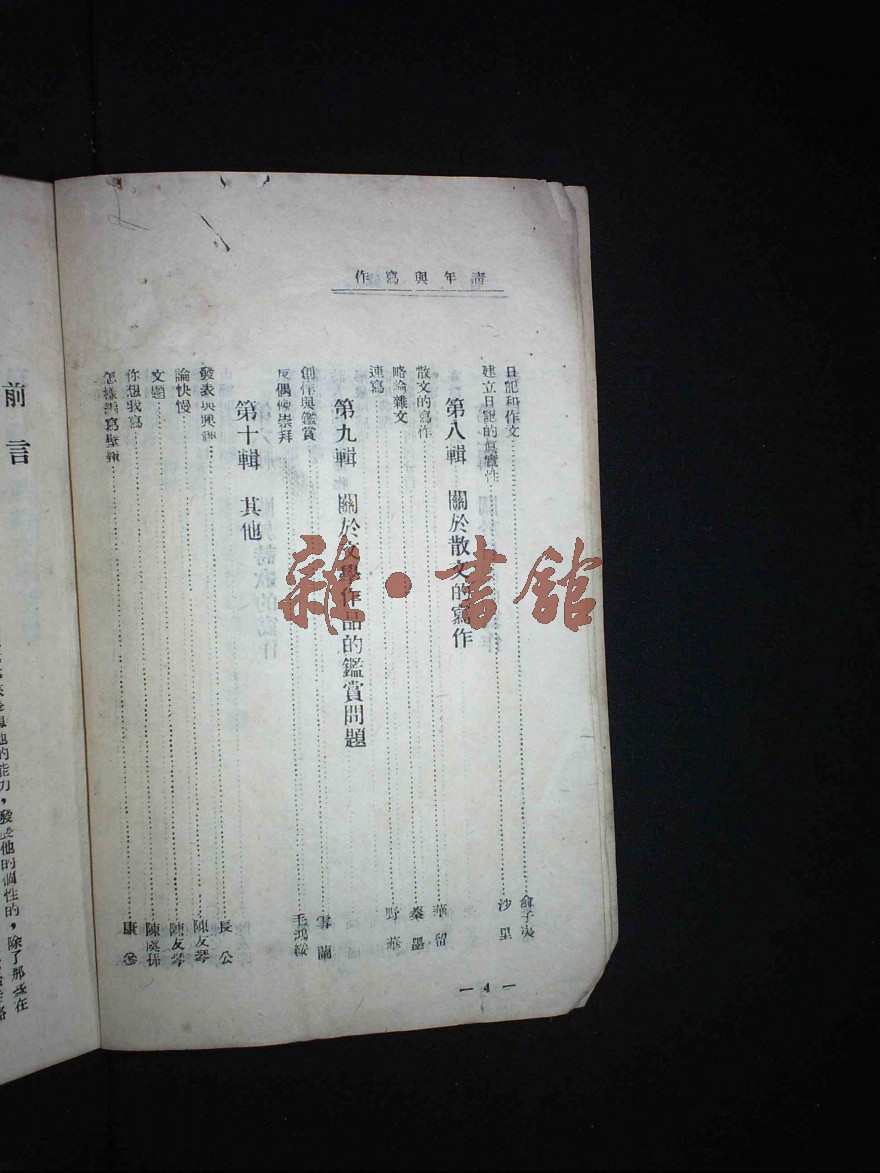 青年與寫作
日記和作文 俞子夷
建立日記的眞實性 沙里
第八輯 關於散文的寫作
散文的寫作 華留
略論雜文 秦墨
速寫 野華
第九輯 關於文學作品的鑑賞問題
創作與鑑賞 雪蘭
反偶像崇拜 毛鴻綏
第十輯 其他
發表與興趣 長公
論快慢 陳友琴
文題 陳友琴
你想我寫 陳虞孫
怎樣編寫壁報 康參
— 4 —
前言
地的能力，發展他的個性的，除了那些在
雜·書館